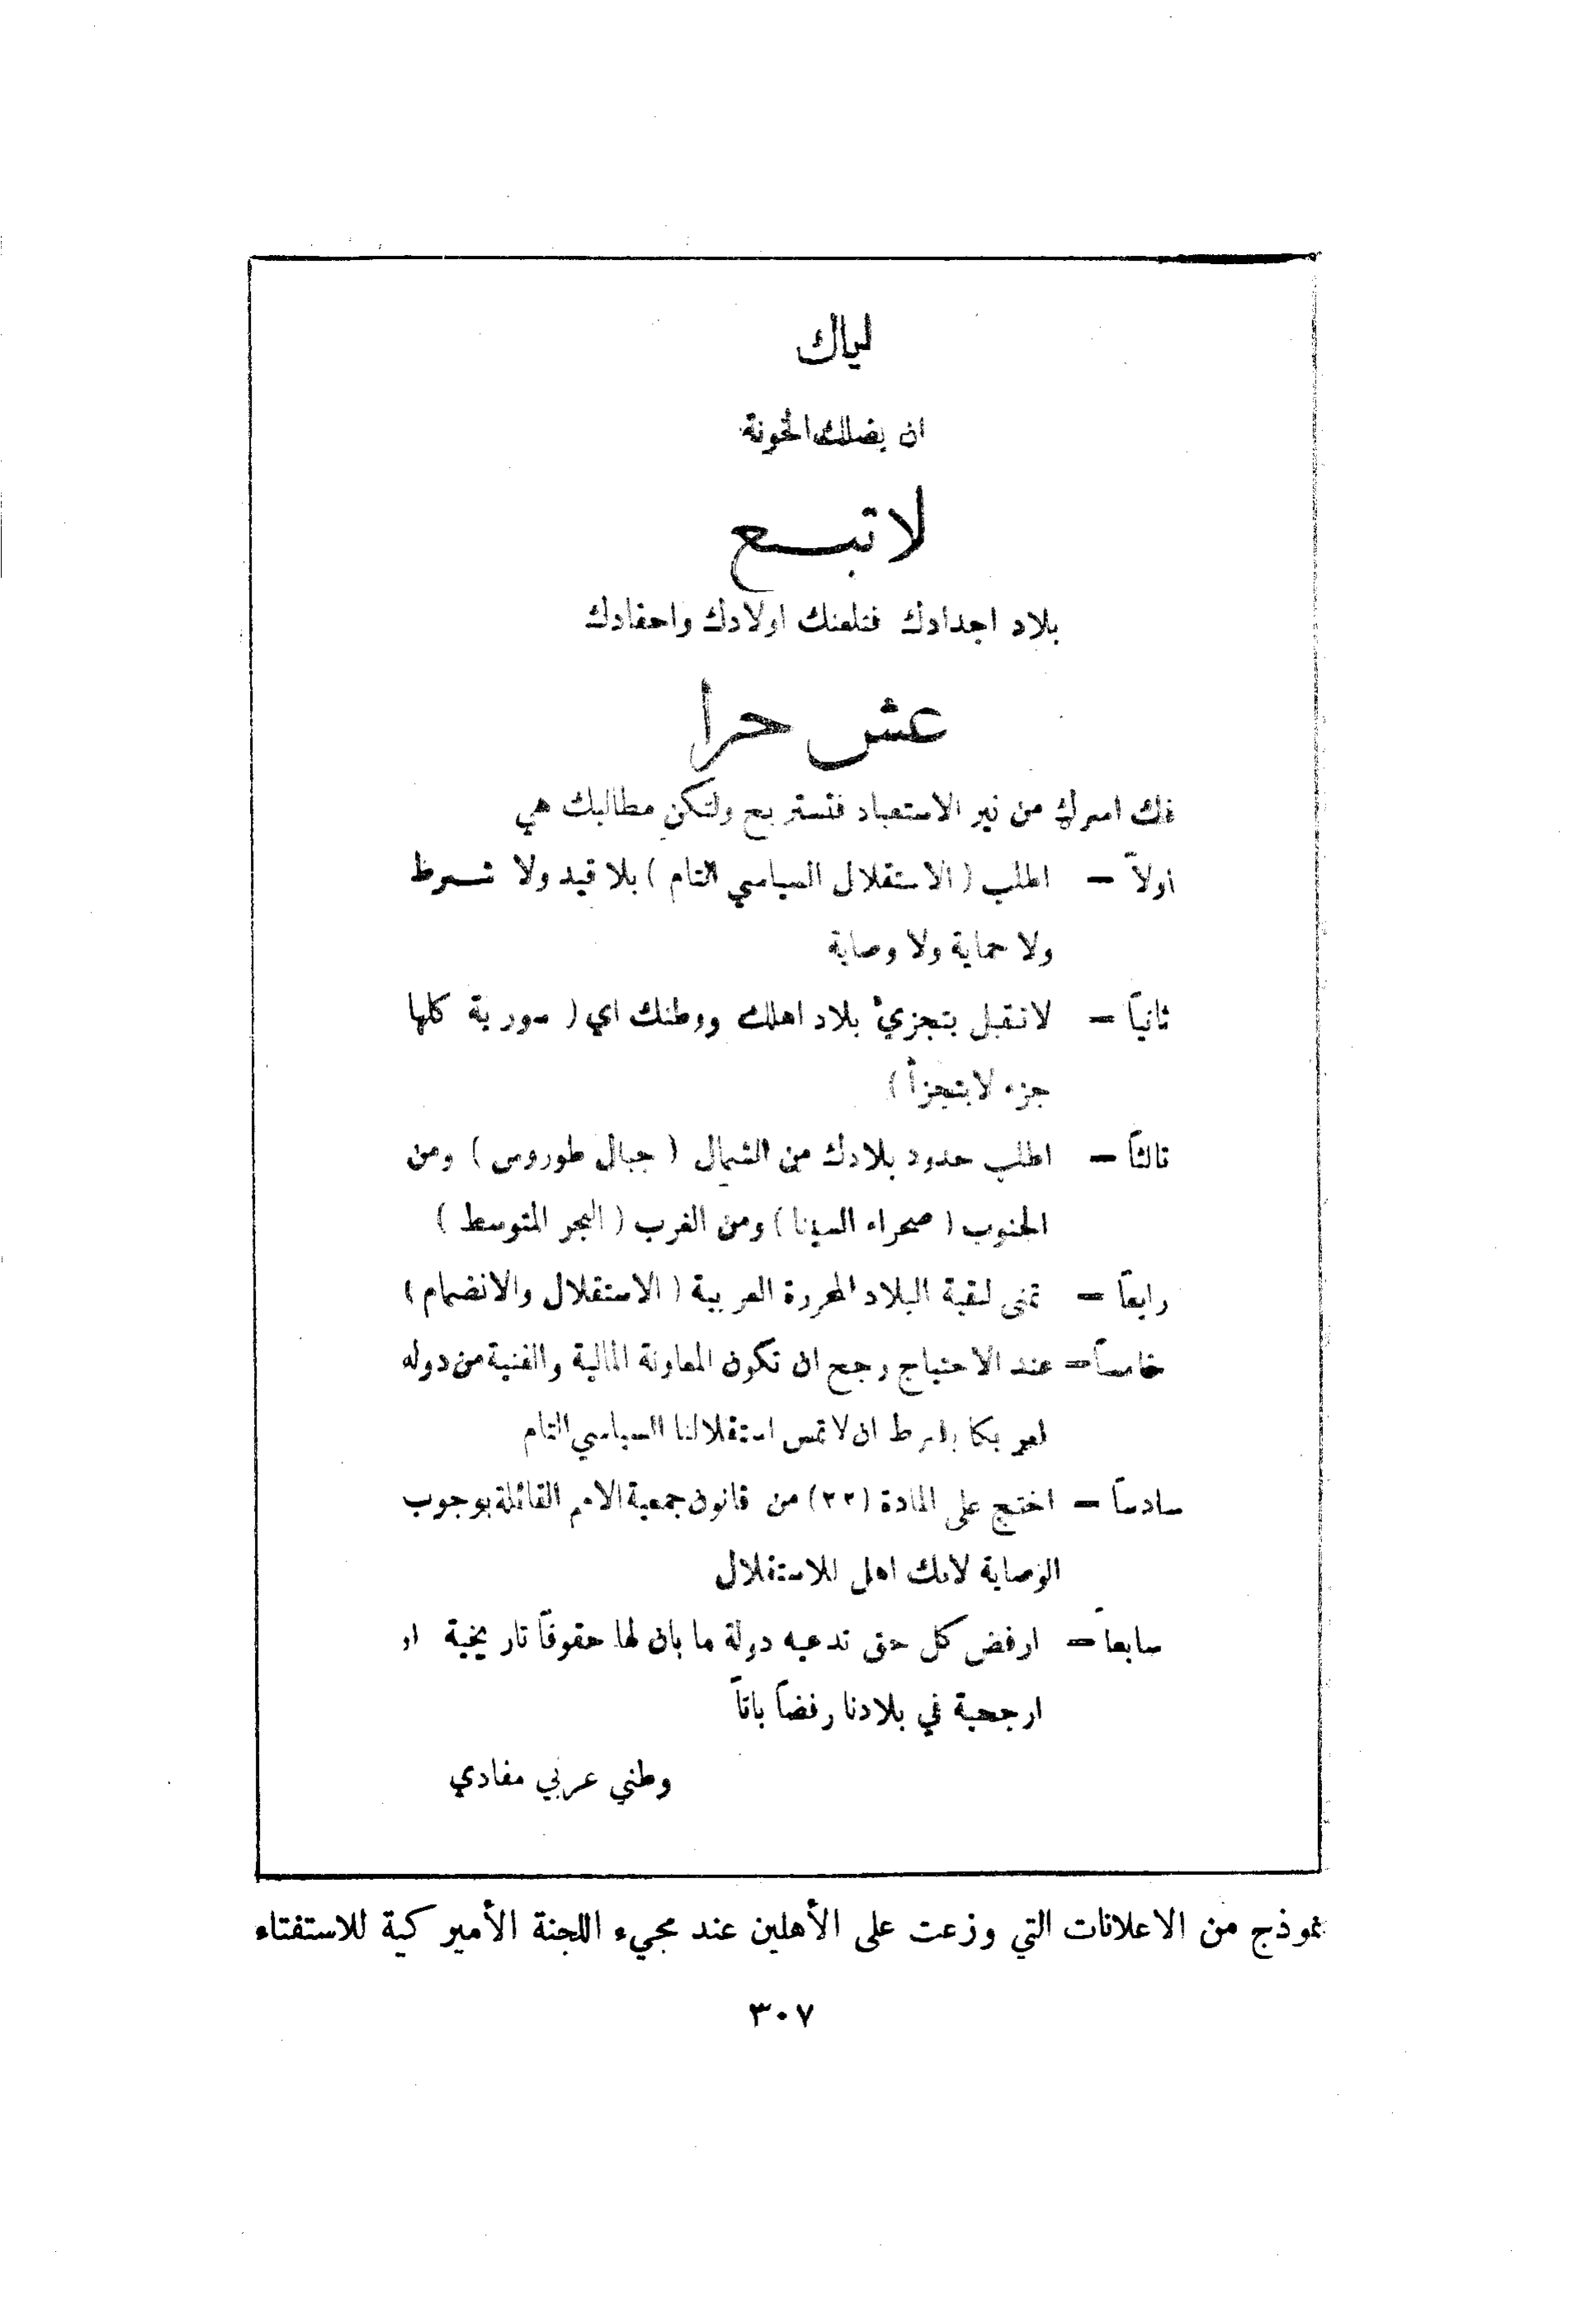 اياك
ان يضلك الخونة
لا تبع
بلاد اجدادك فتلعنك اولادك واحفادك
عش حرا
فك اسرك من نير الاستعباد فتستريح ولتكن مطالبك هي
اولاً — اطلب (الاستقلال السياسي التام) بلا قيد ولا شرط
ولا حماية ولا وصاية
ثانياً — لا تقبل بتجزيء بلاد اهلك ووطنك اي (سورية كلها
جزء لا يتجزأ)
ثالثاً — اطلب حدود بلادك من الشمال (جبال طوروس) ومن
الجنوب (صحراء السينا) ومن الغرب (البحر المتوسط)
رابعاً — تمنى لبقية البلاد المحررة العربية (الاستقلال والانضمام)
خامساً — عند الاحتياج رجح ان تكون المعاونة المالية والفنية من دوله
اميركا بشرط ان لا تمس استقلالنا السياسي التام
سادساً — احتج على المادة (٢٢) من قانون جمعية الامم القائلة بوجوب
الوصاية لانك اهل للاستقلال
سابعاً — ارفض كل حق تدعيه دولة ما بان لها حقوقاً تاريخية او
ارجحية في بلادنا رفضاً باتاً
وطني عربي مفادي
نموذج من الاعلانات التي وزعت على الأهلين عند مجيء اللجنة الأميركية للاستفتاء
٣٠٧